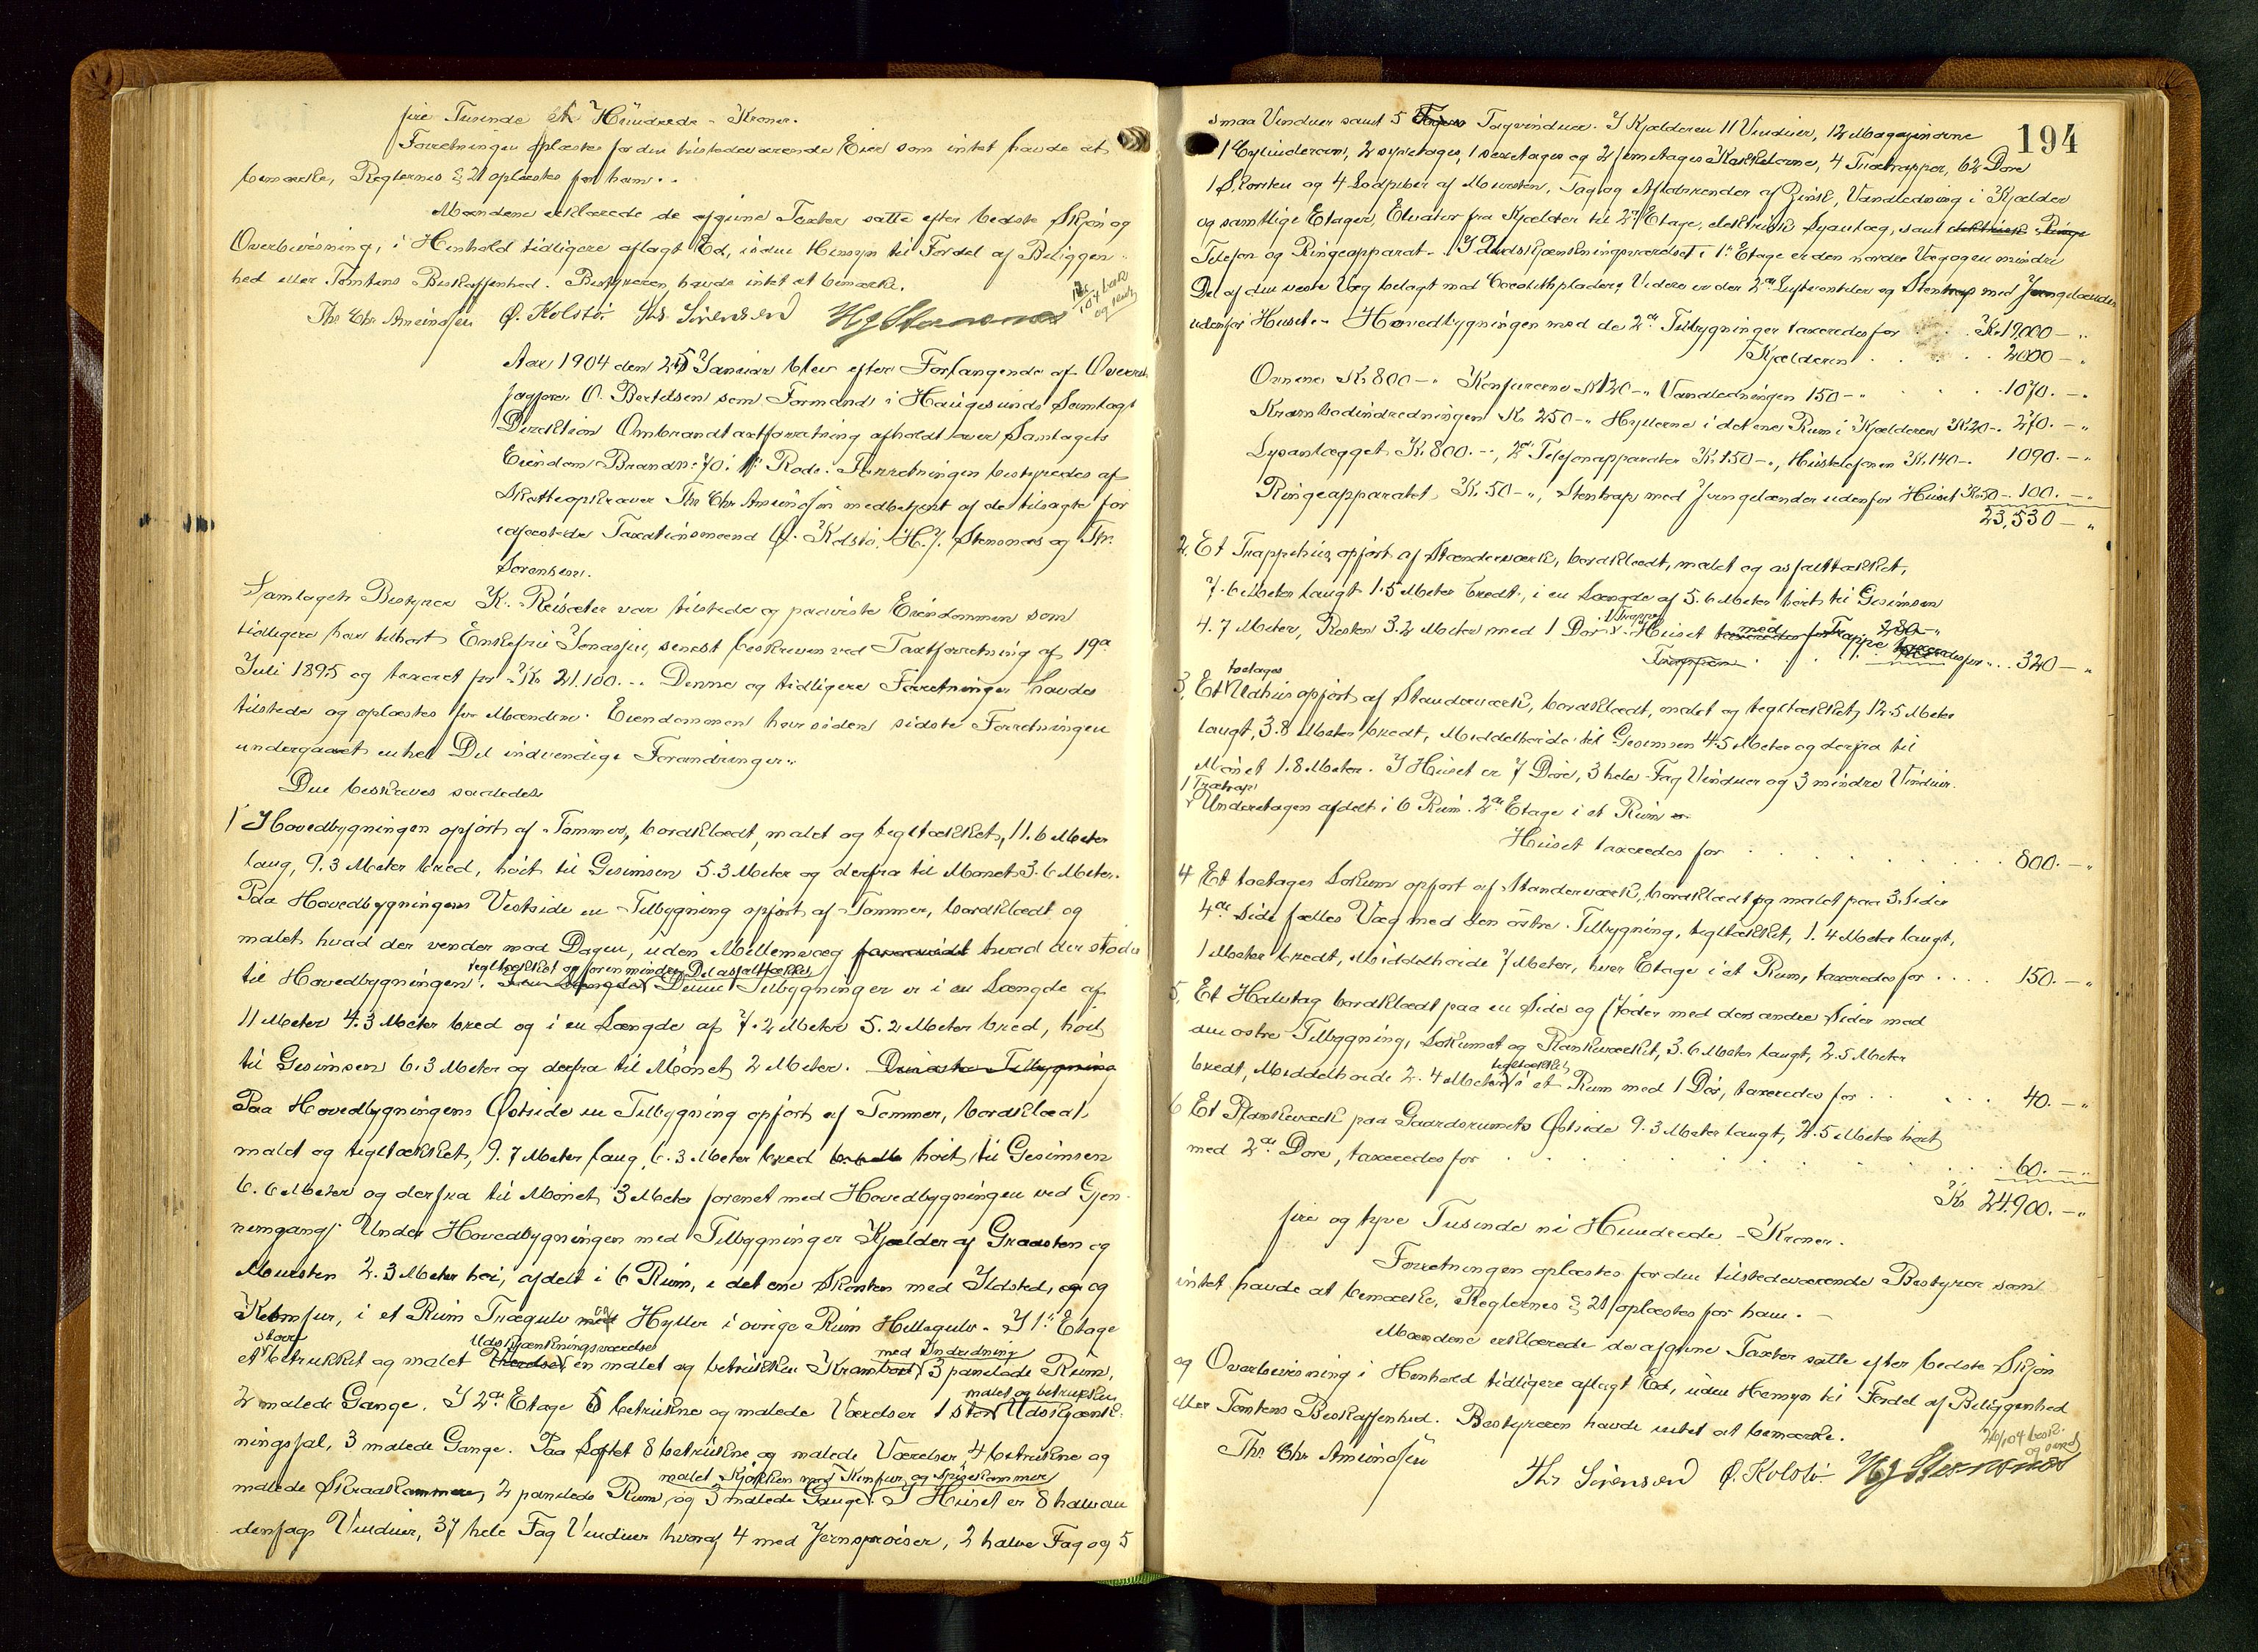 fire Tusinde et Hundrede - Kroner.
Forretningen oplæstes for den tilstedeværende Eier som intet havde at
bemærke, Reglernes § 21 oplæstes for ham. -
Mændene erklærede de afgivne Taxter satte efter bedste Skjøn og
Overbevisning, i Henhold tidligere aflagt Ed, uden Hensyn til Fordel af Beliggen-
hed eller Tomtens Beskaffenhed. Bestyreren havde intet at bemærke.
Ths Chr Amundsen Ø. Kolstø Ths. Sörensen HJ Stensnæs
Aar 1904 den 25 Januar blev efter Forlangende af Overrets
sagfører O. Bertelsen som Formand i Haugesunds Samlags
Direktion Ombrandtaxtforretning afholdt over Samlagets
Eiendom Brandn: 70. 1ste Rode. Forretningen bestyredes af
Skatteopkræver Ths Chr Amundsen medbetjent af de tilsagte før
edfæstede Taxationsmænd Ø. Kolstø, H.J. Stensnæs og Ths.
Sørensen.
Samlagets Bestyrer K. Reisæter var tilstede og paaviste Eiendommen som
tidligere har tilhørt Enkefru Jonassen, senest beskreven ved Taxtforretning af 19de
Juli 1895 og taxeret for Kr 21.100. -. Denne og tidligere Forretninger havdes
tilstede og oplæstes for Mændene. Eiendommen har siden sidste Forretningen
undergaaet en hel Del indvendige Forandringer..
Den beskreves saaledes
1 Hovedbygningen opført af Tømmer, bordklædt, malet og tegltækket, 11.6 Meter
lang, 9.3 Meter bred, høit til Gesimsen 5.3 Meter og derfra til Mønet 3.6 Meter.
Paa Hovedbygningens Vestside en Tilbygning opført af Tømmer, bordklædt og
malet hvad der vender mod Dagen, uden Mellemvæg hvad der støder
tegltækket og for en mindre Del asfalttækket
til Hovedbygningen. Denne Tilbygninger er i en Længde af
11 Meter 4.3 Meter bred og i en Længde af 7.2 Meter 5.2 Meter bred, høit
til Gesimsen 6.3 Meter og derfra til Mønet 2 Meter. Den østre Tilbygning
Paa Hovedbygningens Østside en Tilbygning opført af Tømmer, bordklædt
malet og tegltækket, 9.7 Meter lang, 6.3 Meter bred 6.6 M høit til Gesimsen
6.6 Meter og derfra til Mønet 3 Meter forenet med Hovedbygningen ved Gjen-
nemgang. Under Hovedbygningen med Tilbygninger Kjælder af Graasten og
Mursten 2.3 Meter høi, afdelt i 6 Rum, i det ene Skorsten med Ildsted, og og
Komfur, i et Rum Trægulv og med Hylder i øvrige Rum Hellegulv. I 1ste Etage
stort Udskjænkningsværelse med Indredning
et betrukket og malet Værelse en malet og betrukken Krambod 3 panelede Rum,
malet og betrukken
2 malede Gange. I 2den Etage 5 betrukne og malede Værelser 1 stor Udskjænk-
ningssal, 3 malede Gange. Paa Loftet 8 betrukne og malede Værelser, 4 betrukne og
malet Kjøkken med Komfur og Spisekammer
malede Skraakammere, 2 panelede Rum og 3 malede Gange. I Huset er 8 halvan
denfags Vinduer, 37 hele Fag Vinduer hvoraf 4 med Jernsproiser, 2 halve Fag og 5
194
smaa Vinduer samt 5 Tagvinduer. I Kjælderen 11 Vinduer, 12 Magasinovne
1 Cylinderovn, 2 syvetages, 1 sexetages og 2 femetages Kakkelovne, 4 Trætrapper, 62 Døre
1 Skorsten og 4 Lodpiber af Mursten, Tag og Afløbsrender af Zink, Vandledning i Kjælder
og samtlige Etager, Elevator fra Kjælder til 2den Etage, elektrisk Lysanlæg, samt elektrisk Ringe
Telefon og Ringeapparat. - I Udskjænkningsværelset i 1ste Etage er den nordre Væg og en mindre
Del af den vestre Væg belagt med plader. Videre er der 2de Luftventiler og Stentrap med Jerngelænder
udenfor Huset. - Hovedbygningen med de 2de Tilbygninger taxeredes for Kr 19,000 - ..
Kjælderen . . . 2000 - ..
Ovnene Kr 800 - .. Komfurerne Kr 120 - .. Vandledningen 150 - .. 1070. - ..
Krambodindredningen Kr 250 - .. Hyllerne i det ene Rum i Kjælderen Kr 20 -. 270. - ..
Lysanlægget Kr 800. - .., 2de Telefonapparater Kr 150 - .., Hustelefonen Kr. 140 -. 1090. - ..
Ringeapparatet Kr. 50 - .., Stentrap med Jerngelænder udenfor Huset Kr 50 -. 100. - ..
23,530 - ..
2. Et Trappehus opført af Stænderværk, bordklædt, malet og asfalttækket,
7.6 Meter langt 1.5 Meter bredt, i en Længde af 5.6 Meter høit til Gesimsen
1 Trappe
4.7 Meter, Resten 3.2 Meter med 1 Dør. Huset taxeredes for 280 - ..
med Trappe taxeredes for .. . . 320 - ..
Trappen
toetages
3. Et Udhus opført af Stænderværk, bordklædt, malet og tegltækket, 12.5 Meter
langt, 3.8 Meter bredt, Middelhøide til Gesimsen 4.5 Meter og derfra til
Mønet 1.8 Meter. I Huset er 7 Døre, 3 hele Fag Vinduer og 3 mindre Vinduer.
1 Trætrap
Underetagen afdelt i 6 Rum. 2den Etage i et Rum
Huset taxeredes for . . . 800. - ..
4 Et toetages Lokum opført af Stænderværk, bordklædt og malet paa 3. Sider
4de Side fælles Væg med den östre Tilbygning, tegltækket, 1.4 Meter langt,
1 Meter bredt, Middelhøide 7 Meter, hver Etage i et Rum, taxeredes for . . . 150. - ..
5. Et Halvtag bordklædt paa en Side og støder med den andre Sider mod
den østre Tilbygning, Lokumet og Plankeværket, 3.6 Meter langt, 2.5 Meter
tegltækket
bredt, Middelhøide 2.4 Meter i et Rum med 1 Dør, taxeredes for . . . 40. - ..
6 Et Plankeværk paa Gaardsrumets Østside 9.3 Meter langt, 2.5 Meter høit
med 2de Døre, taxeredes for . . . 60. - ..
Kr 24.900. - ..
fire og tyve Tusinde ni Hundrede - Kroner.
Forretningen oplæstes for den tilstedeværende Bestyrer som
intet havde at bemærke, Reglernes § 21 oplæstes for ham. -
Mændene erklærede de afgivne Taxter satte efter bedste Skjøn
og Overbevisning i Henhold tidligere aflagt Ed, uden Hensyn til Fordel af Beliggenhed
eller Tomtens Beskaffenhed. Bestyreren havde intet at bemærke.
Ths Chr Amundsen
Ths Sörensen Ø. Kolstø HJ Stensnæs